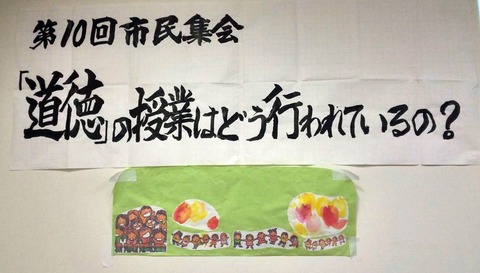 第10回市民集会
「道徳」の授業はどう行われているの？